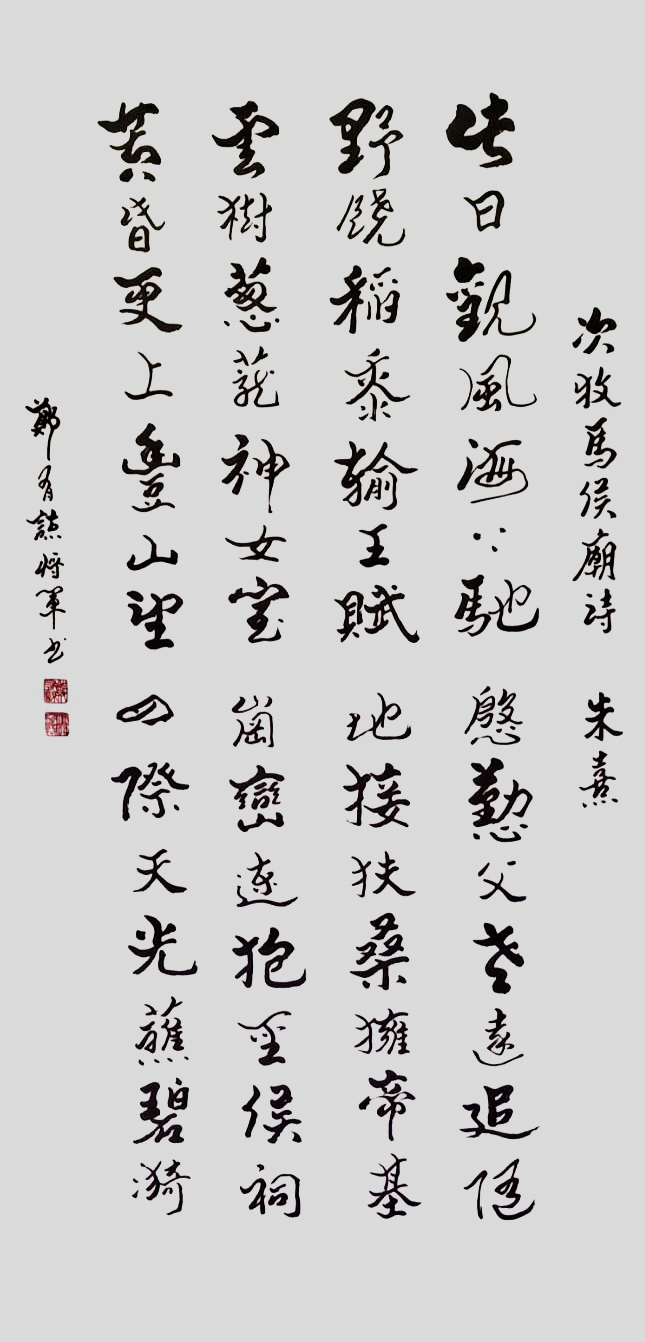 次牧馬侯廟詩 朱熹
此日觀風海上馳 慇懃父老遠追隨
野饒稻黍輸王賦 地接扶桑擁帝基
雲樹蔥蘢神女室 崗巒連抱圣侯祠
黃昏更上豐山望 四際天光蘸碧漪
鄭有將軍书